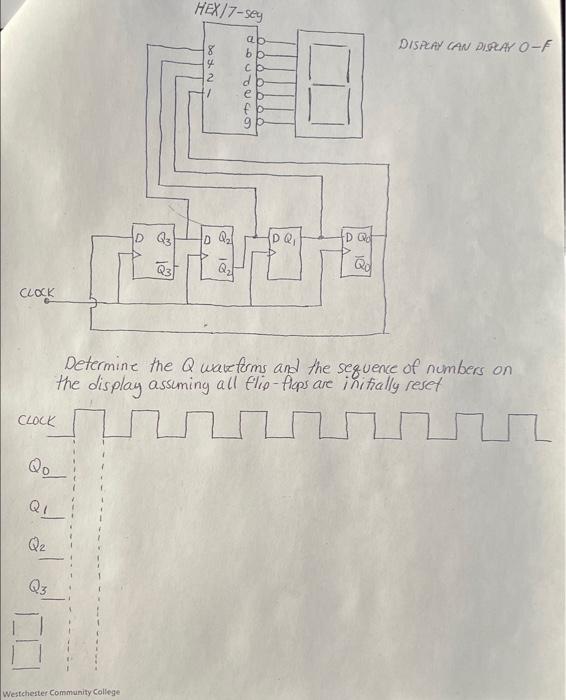 HEX/7-seg
DISPLAY CAN DISPLAY 0-F
8
4
2
1
a
b
c
d
e
f
g
D Q3
Q̅3
D Q2
Q̅2
D Q1
D Q0
Q̅0
CLOCK
Determine the Q waveforms and the sequence of numbers on
the display assuming all flip-flops are initially reset
CLOCK
Q0
Q1
Q2
Q3
Westchester Community College